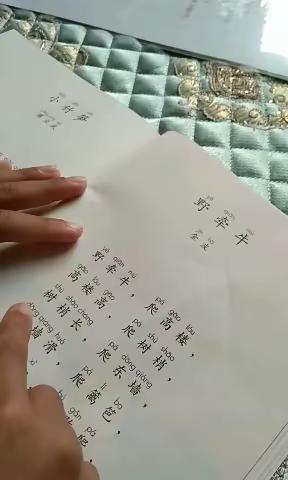 小竹笋
yě qiān niú
野牵牛
jīn bō
金波
yě qiān niú pá gāo lóu
野牵牛,爬高楼,
gāo lóu gāo pá shù shāo
高楼高,爬树梢,
shù shāo cháng pá dōng qiáng
树梢长,爬东墙,
dōng qiáng huá pá lí ba
墙滑,爬篱笆,
gǎn pá
爬,